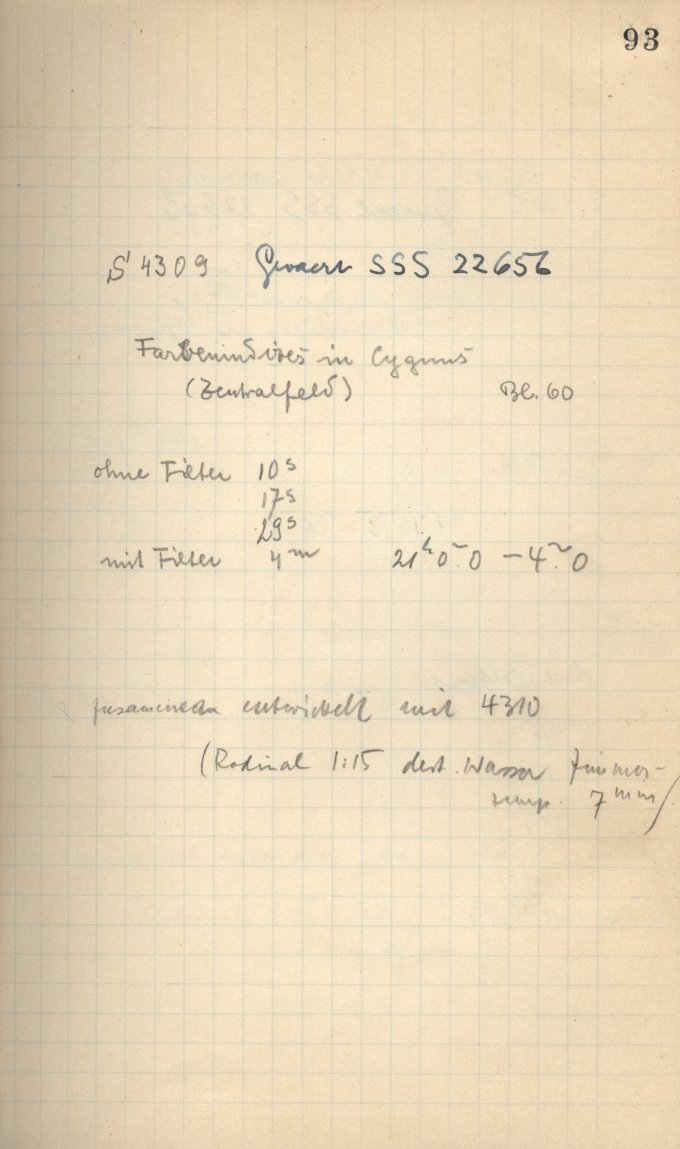 93
S 4309 Gevaert SSS 22656
Farbenindizes in Cygnus
(Zentralfeld) Bl. 60
ohne Filter 10s
17s
29s
mit Filter 4m 21h 0m.0 – 4m.0
zusammen entwickelt mit 4310
(Rodinal 1:15 dest. Wasser Zimmer-
temp. 7min)